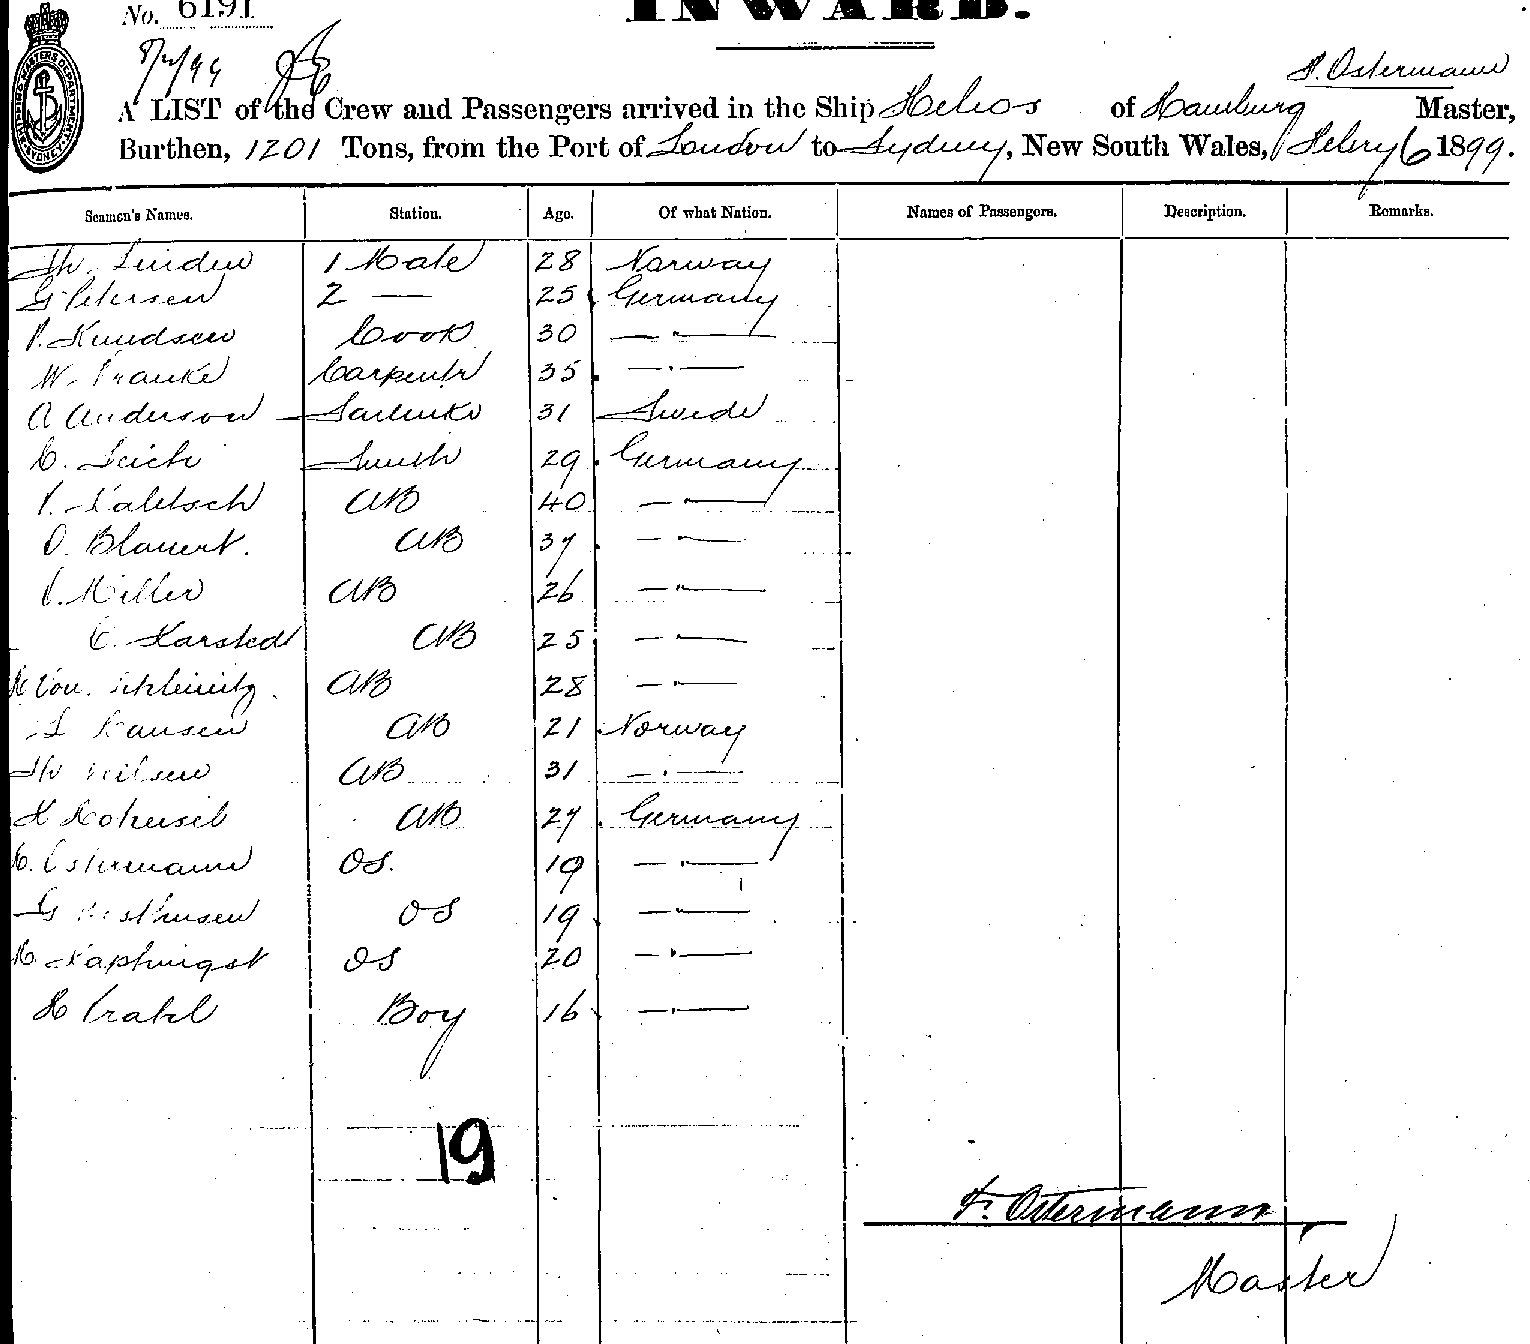 No. 6191
INWARD.
F. Ostermann
A LIST of the Crew and Passengers arrived in the Ship Helios of Hamburg Master,
Burthen, 1201 Tons, from the Port of London to Sydney, New South Wales, Febry 6 1899.
Seamen's Names. Station. Age. Of what Nation. Names of Passengers. Description. Remarks.
Th. Linden 1 Mate 28 Norway
G Petersen 2 — 25 Germany
P. Knudsen Cook 30 — " —
W. Franke Carpentr 35 — " —
A Anderson 31 Swede
C. Smith 29 Germany
AB 40 — " —
O. Blauert. AB 37 — " —
Miller AB 26 — " —
C. Karsted AB 25 — " —
H von Schleinitz. AB 28 — " —
L Hansen AB 21 Norway
Th Nilsen AB 31 — " —
AB 27 Germany
C. Ostermann OS. 19 — " —
G OS 19 — " —
OS 20 — " —
H Boy 16 — " —
19
F. Ostermann
Master